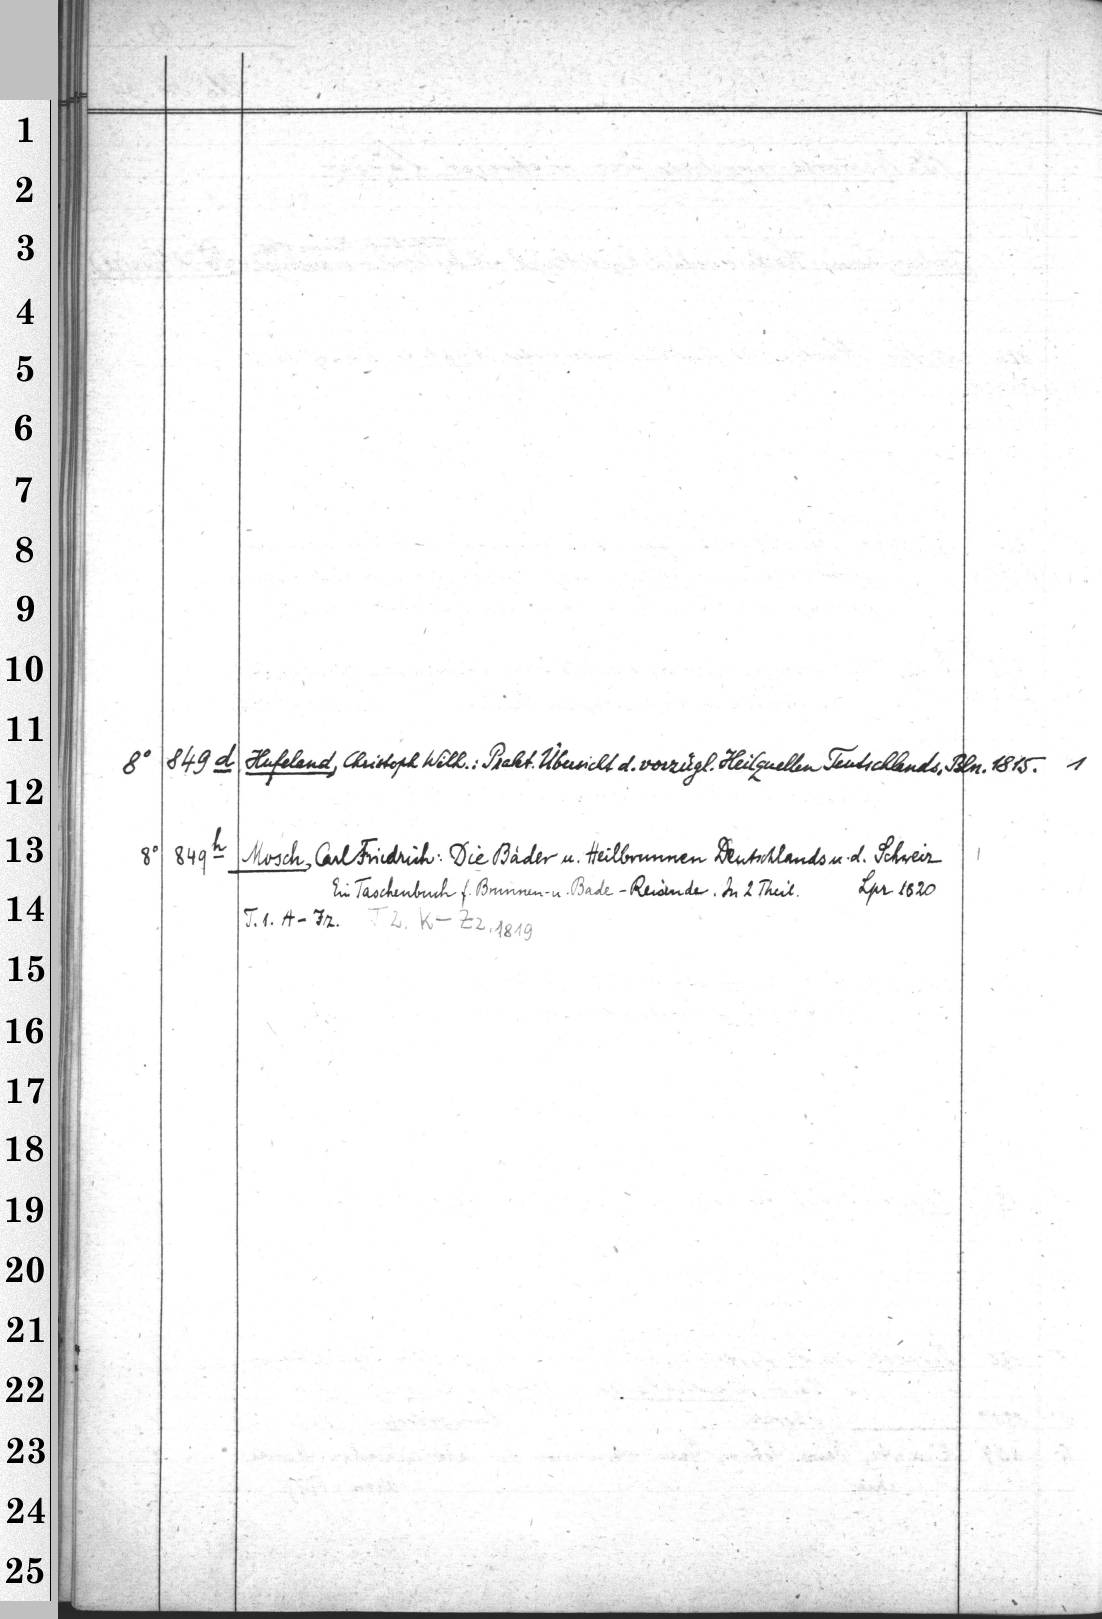 1
2
3
4
5
6
7
8
9
10
11
8° 849 d Hufeland, Christoph Wilh.: Prakt. Übersicht d. vorzügl. Heilquellen Teutschlands, Bln. 1815. 1
12
13 8° 849 h Mosch, Carl Friedrich: Die Bäder u. Heilbrunnen Deutschlands u. d. Schweiz 1
Ein Taschenbuch f. Brunnen- u. Bade-Reisende. In 2 Theil. Lpz 1820
14 T. 1. A-Iz. T 2. K-Zz, 1819
15
16
17
18
19
20
21
22
23
24
25